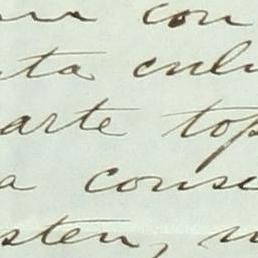 con
ta cul
arte top
a conse
sten,